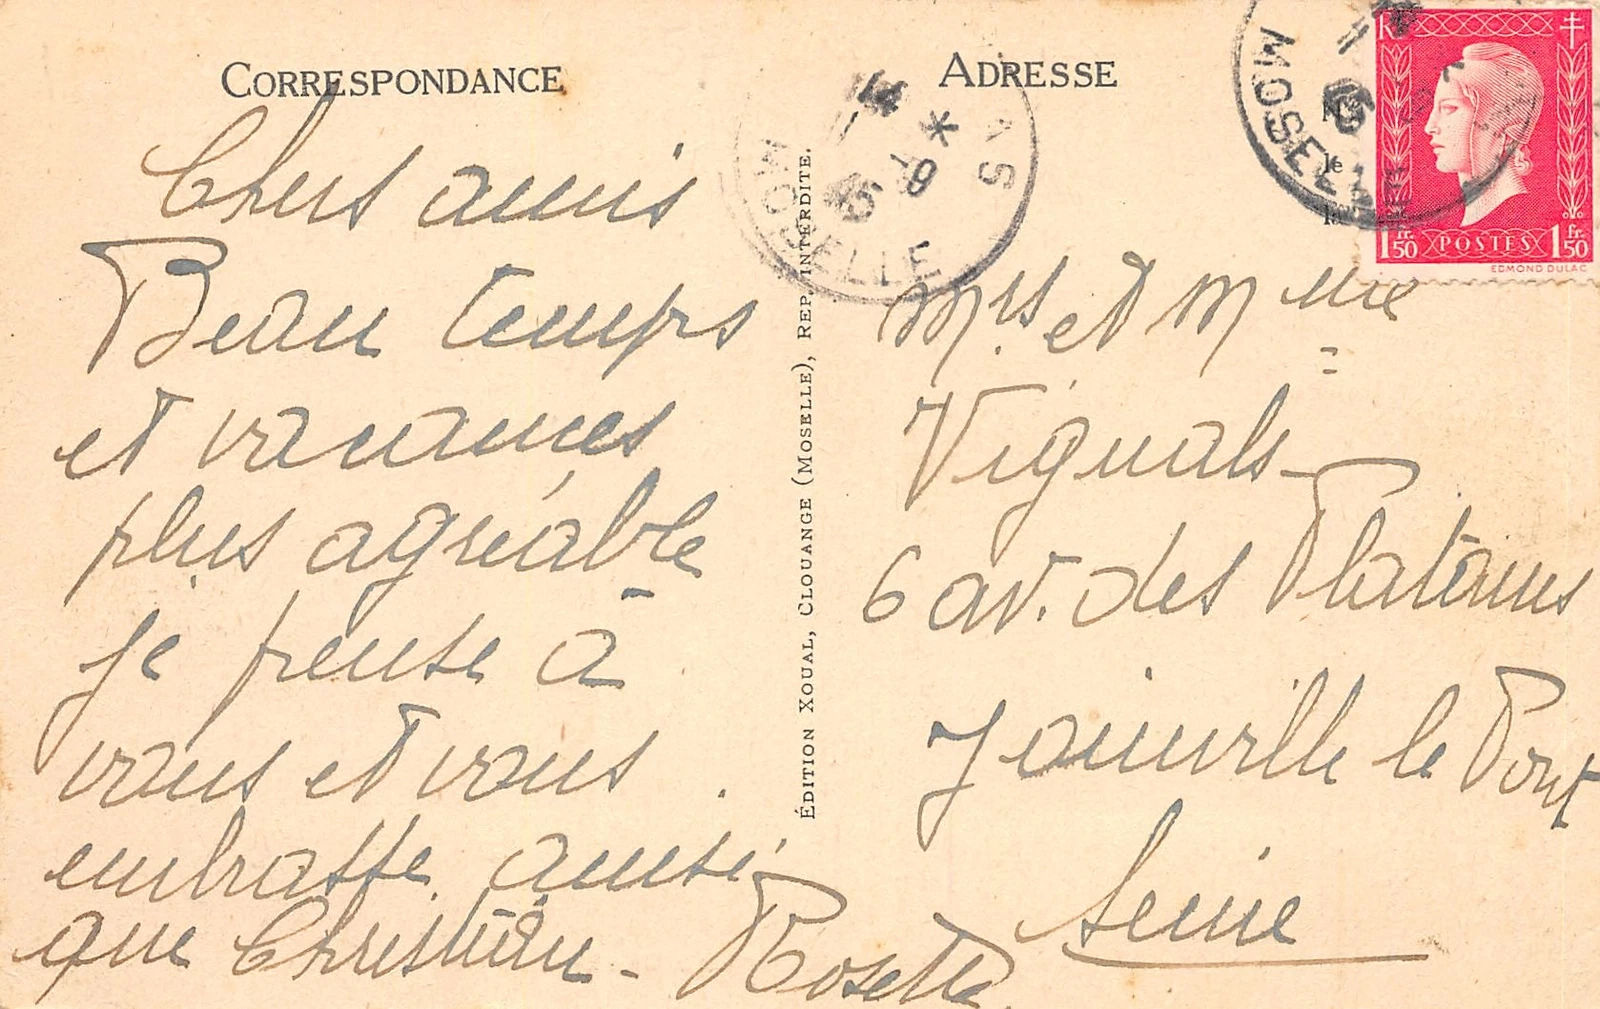 CORRESPONDANCE
Chers amis
Beau temps
et vacances
plus agréable
je pense à
vous et vous
embrasse ainsi
que Christian -
Rosette
ÉDITION XOUAL, CLOUANGE (MOSELLE), REP. INTERDITE.
ADRESSE
Mrs et Mme
Viguals -
6 av. des Platanes
Joinville le Pont
Seine
14
*
9
45
AS
MOSELLE
MOSELLE
RF
1Fr.50 POSTES 1Fr.50
EDMOND DULAC